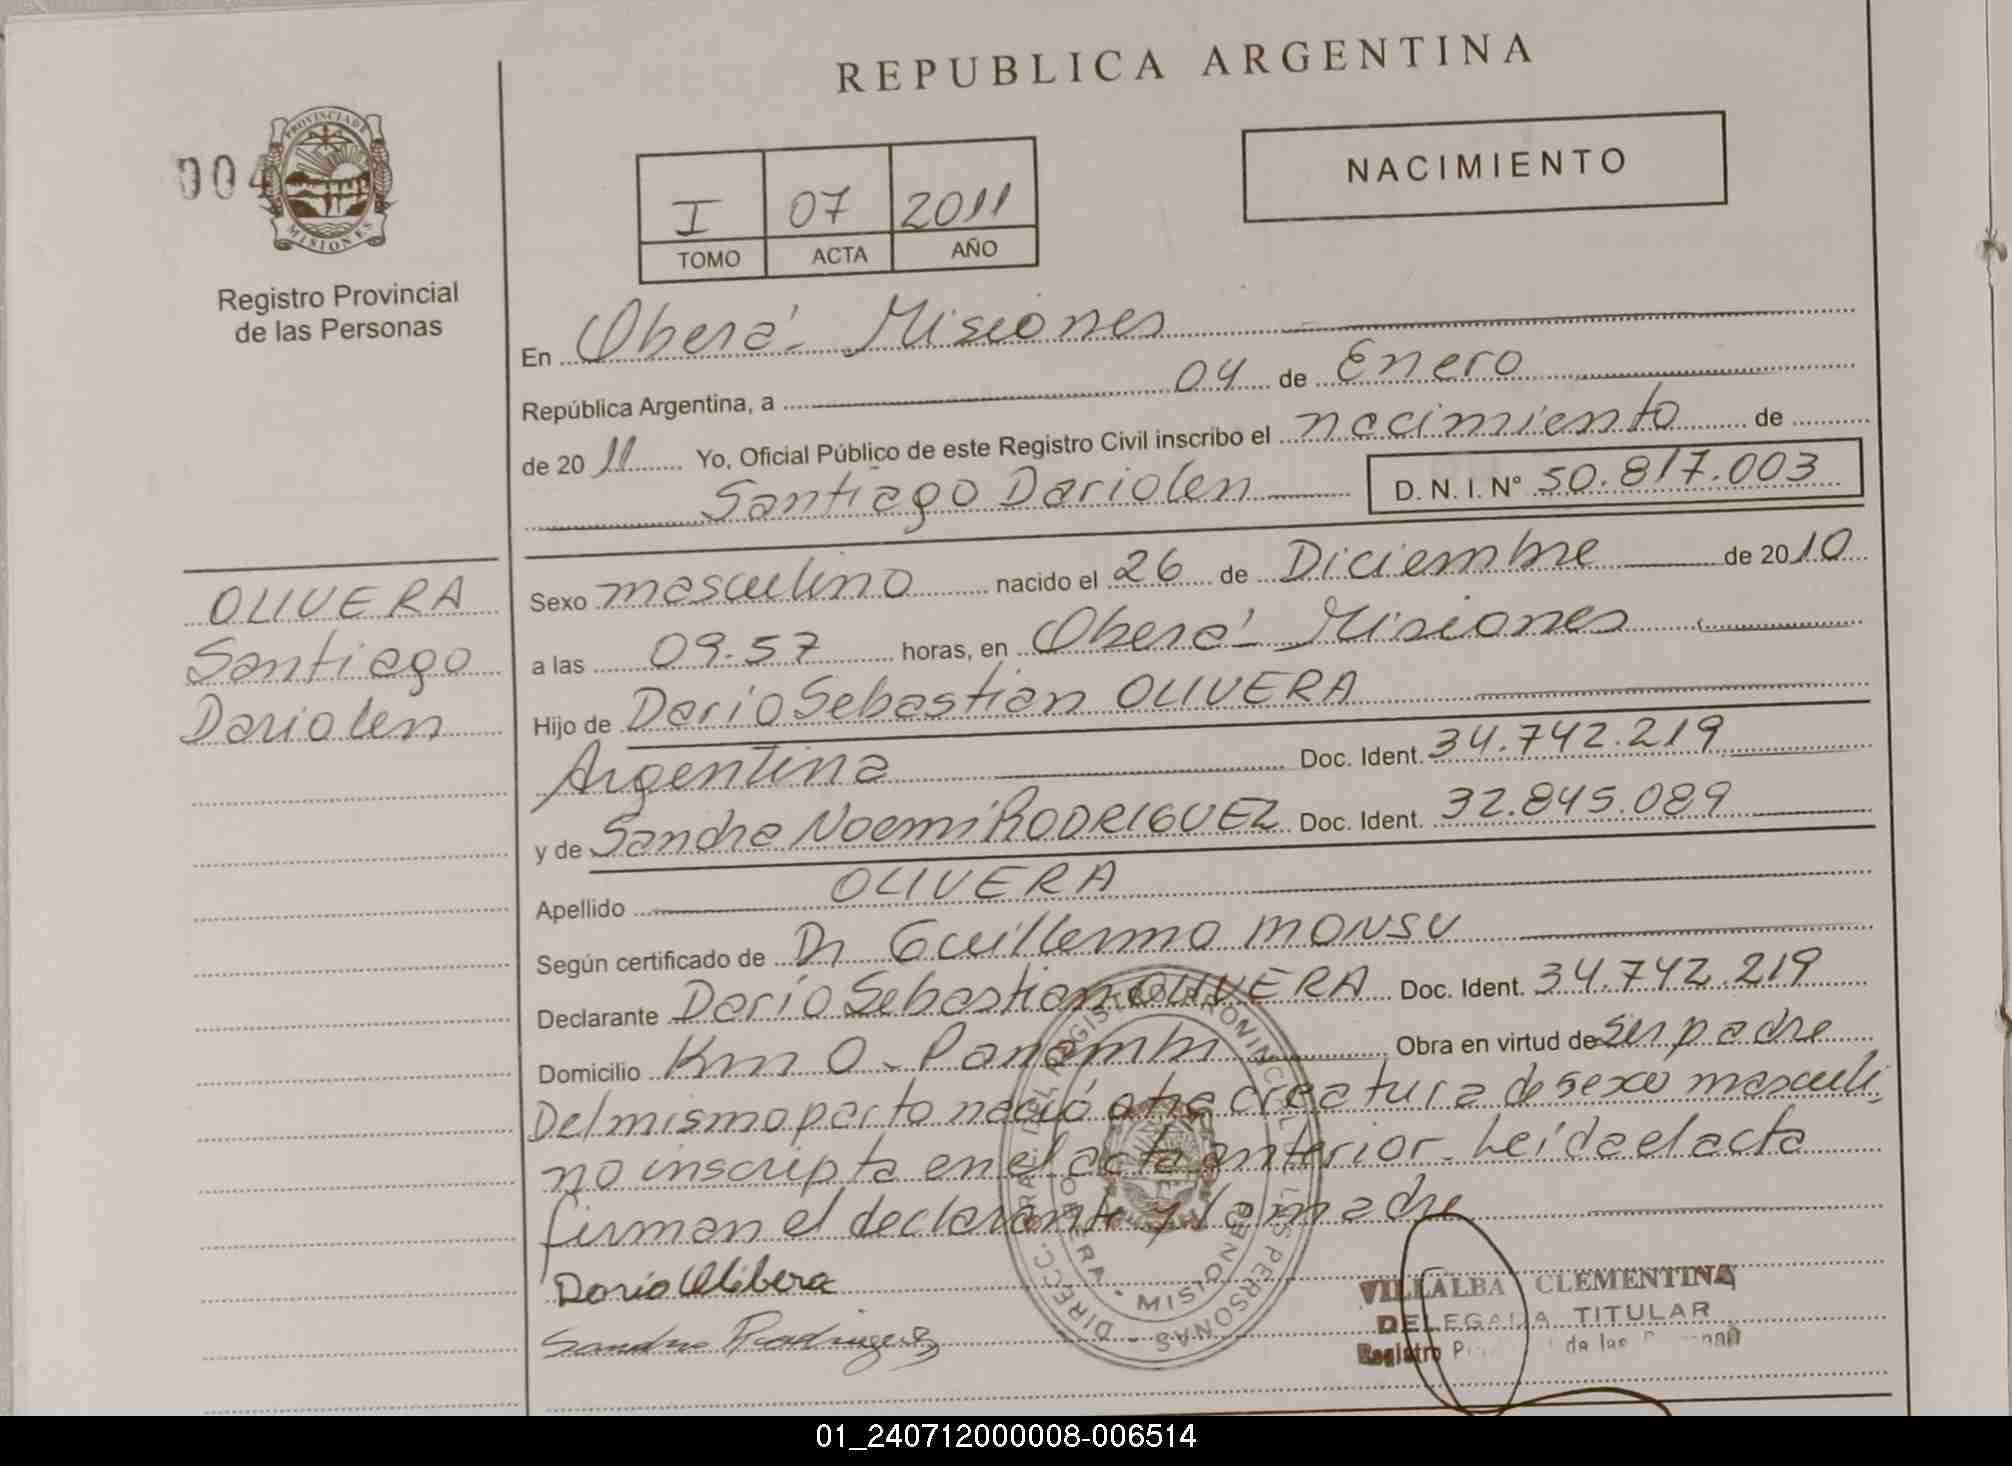 REPUBLICA ARGENTINA
004
PROVINCIA DE MISIONES
Registro Provincial
de las Personas
I 07 2011
TOMO ACTA AÑO
NACIMIENTO
En Oberá - Misiones
República Argentina, a 04 de Enero
de 2011 Yo, Oficial Público de este Registro Civil inscribo el nacimiento de
Santiago Dariolen D. N. I. N° 50.817.003
OLIVERA
Santiago
Dariolen
Sexo masculino nacido el 26 de Diciembre de 2010
a las 09.57 horas, en Oberá - Misiones
Hijo de Darío Sebastian OLIVERA
Argentina Doc. Ident. 34.742.219
y de Sandra Noemí RODRIGUEZ Doc. Ident. 32.845.089
Apellido OLIVERA
Según certificado de Dr Guillermo MONSU
Declarante Darío Sebastian OLIVERA Doc. Ident. 34.742.219
Domicilio Km 0 - Panambi Obra en virtud de ser padre
Del mismo parto nació otra creatura de sexo masculi-
no inscripta en el acta anterior - Leída el acta
firman el declarante y la madre
Dario Olibera
Sandra Rodriguez
DIRECC. GRAL. DEL REGISTRO PROVINCIAL DE LAS PERSONAS
OBERA - MISIONES
VILLALBA CLEMENTINA
DELEGADA TITULAR
Registro de las
01_240712000008-006514